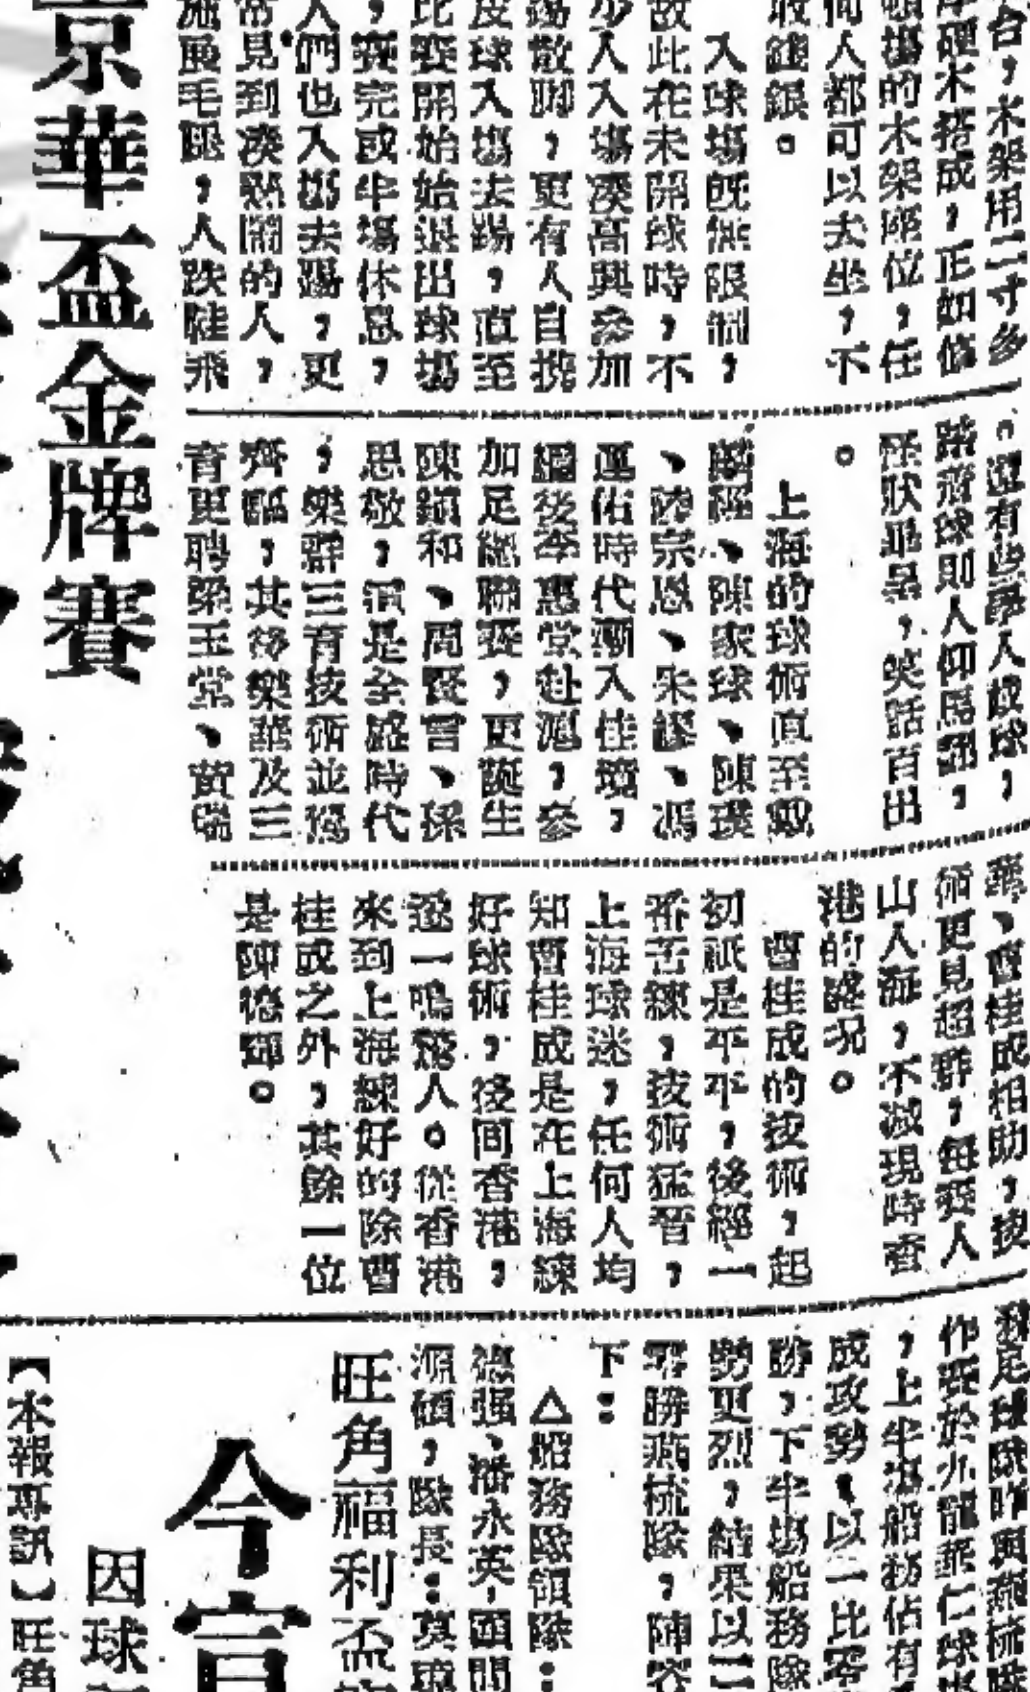 台，木架用二寸多
厚硬木搭成，正如修
頓場的木架階位，任
何人都可以去坐，不
收錢銀。
入球場既無限制，
故此在未開球時，不
少人入場湊高興參加
踢散脚，更有人自携
皮球入塲去踢，直至
比賽開始始退出球塲
，賽完或半塲休息，
人們也入塲去踢，更
常見到湊熱鬧的人，
施展毛腿，人跌鞋飛
。還有些
踏着球則人仰馬翻，
怪狀畢呈，笑話百出
。
上海的球術直至戴
麟經、陳家球、陳璞
、陸宗恩、朱繆、馮
運佑時代漸入佳境，
繼後李惠堂赴滬，參
加足總聯賽，更誕生
陳鎮和、周賢言、孫
思敬，演是全盛時代
，樂群三育技術並駕
齊驅，其後樂華及三
育更聘梁玉堂、黃瑞
華、曹桂成相助，技
術更見超群，每賽人
山人海，不減現時香
港的盛况。
曹桂成的技術，起
初祇是平平，後經一
番苦練，技術猛晉，
上海球迷，任何人均
知曹桂成是在上海練
好球術，後回香港，
遂一鳴驚人。從香港
來到上海練好的除曹
桂成之外，其餘一位
是陳德輝。
京華盃金牌賽
作賽於九龍華仁球塲
，上半塲船務佔有
成攻勢，以一比零
勝，下半塲船務隊
勢更烈，結果以三
零勝燕梳隊，陣容
下：
△船務隊領隊：
强、潘永英，顧問
源碩，隊長：莫
旺角福利盃
今宣
因球
【本報專訊】旺角